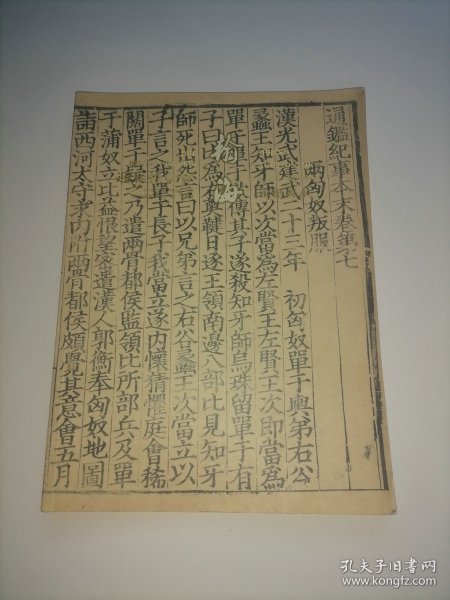 通鑑紀事本末卷第七
兩匈奴叛服
漢光武建武二十三年　初匈奴單于輿弟右谷
蠡王知牙師以次當為左賢王左賢王次即當為
單于單于欲傳其子遂殺知牙師烏珠留單于有
子曰比為右薁鞬日逐王領南邊八部比見知牙
師死出怨言曰以兄弟言之右谷蠡王次當立以
子言之我單于長子我當立遂内懷猜懼庭會稀
闊單于疑之乃遣兩骨都侯監領比所部兵及單
于蒲奴立比益恨望密遣漢人郭衡奉匈奴地圖
詣西河太守求内附兩骨都侯頗覺其意會五月
孔夫子旧书网
www.kongfz.com